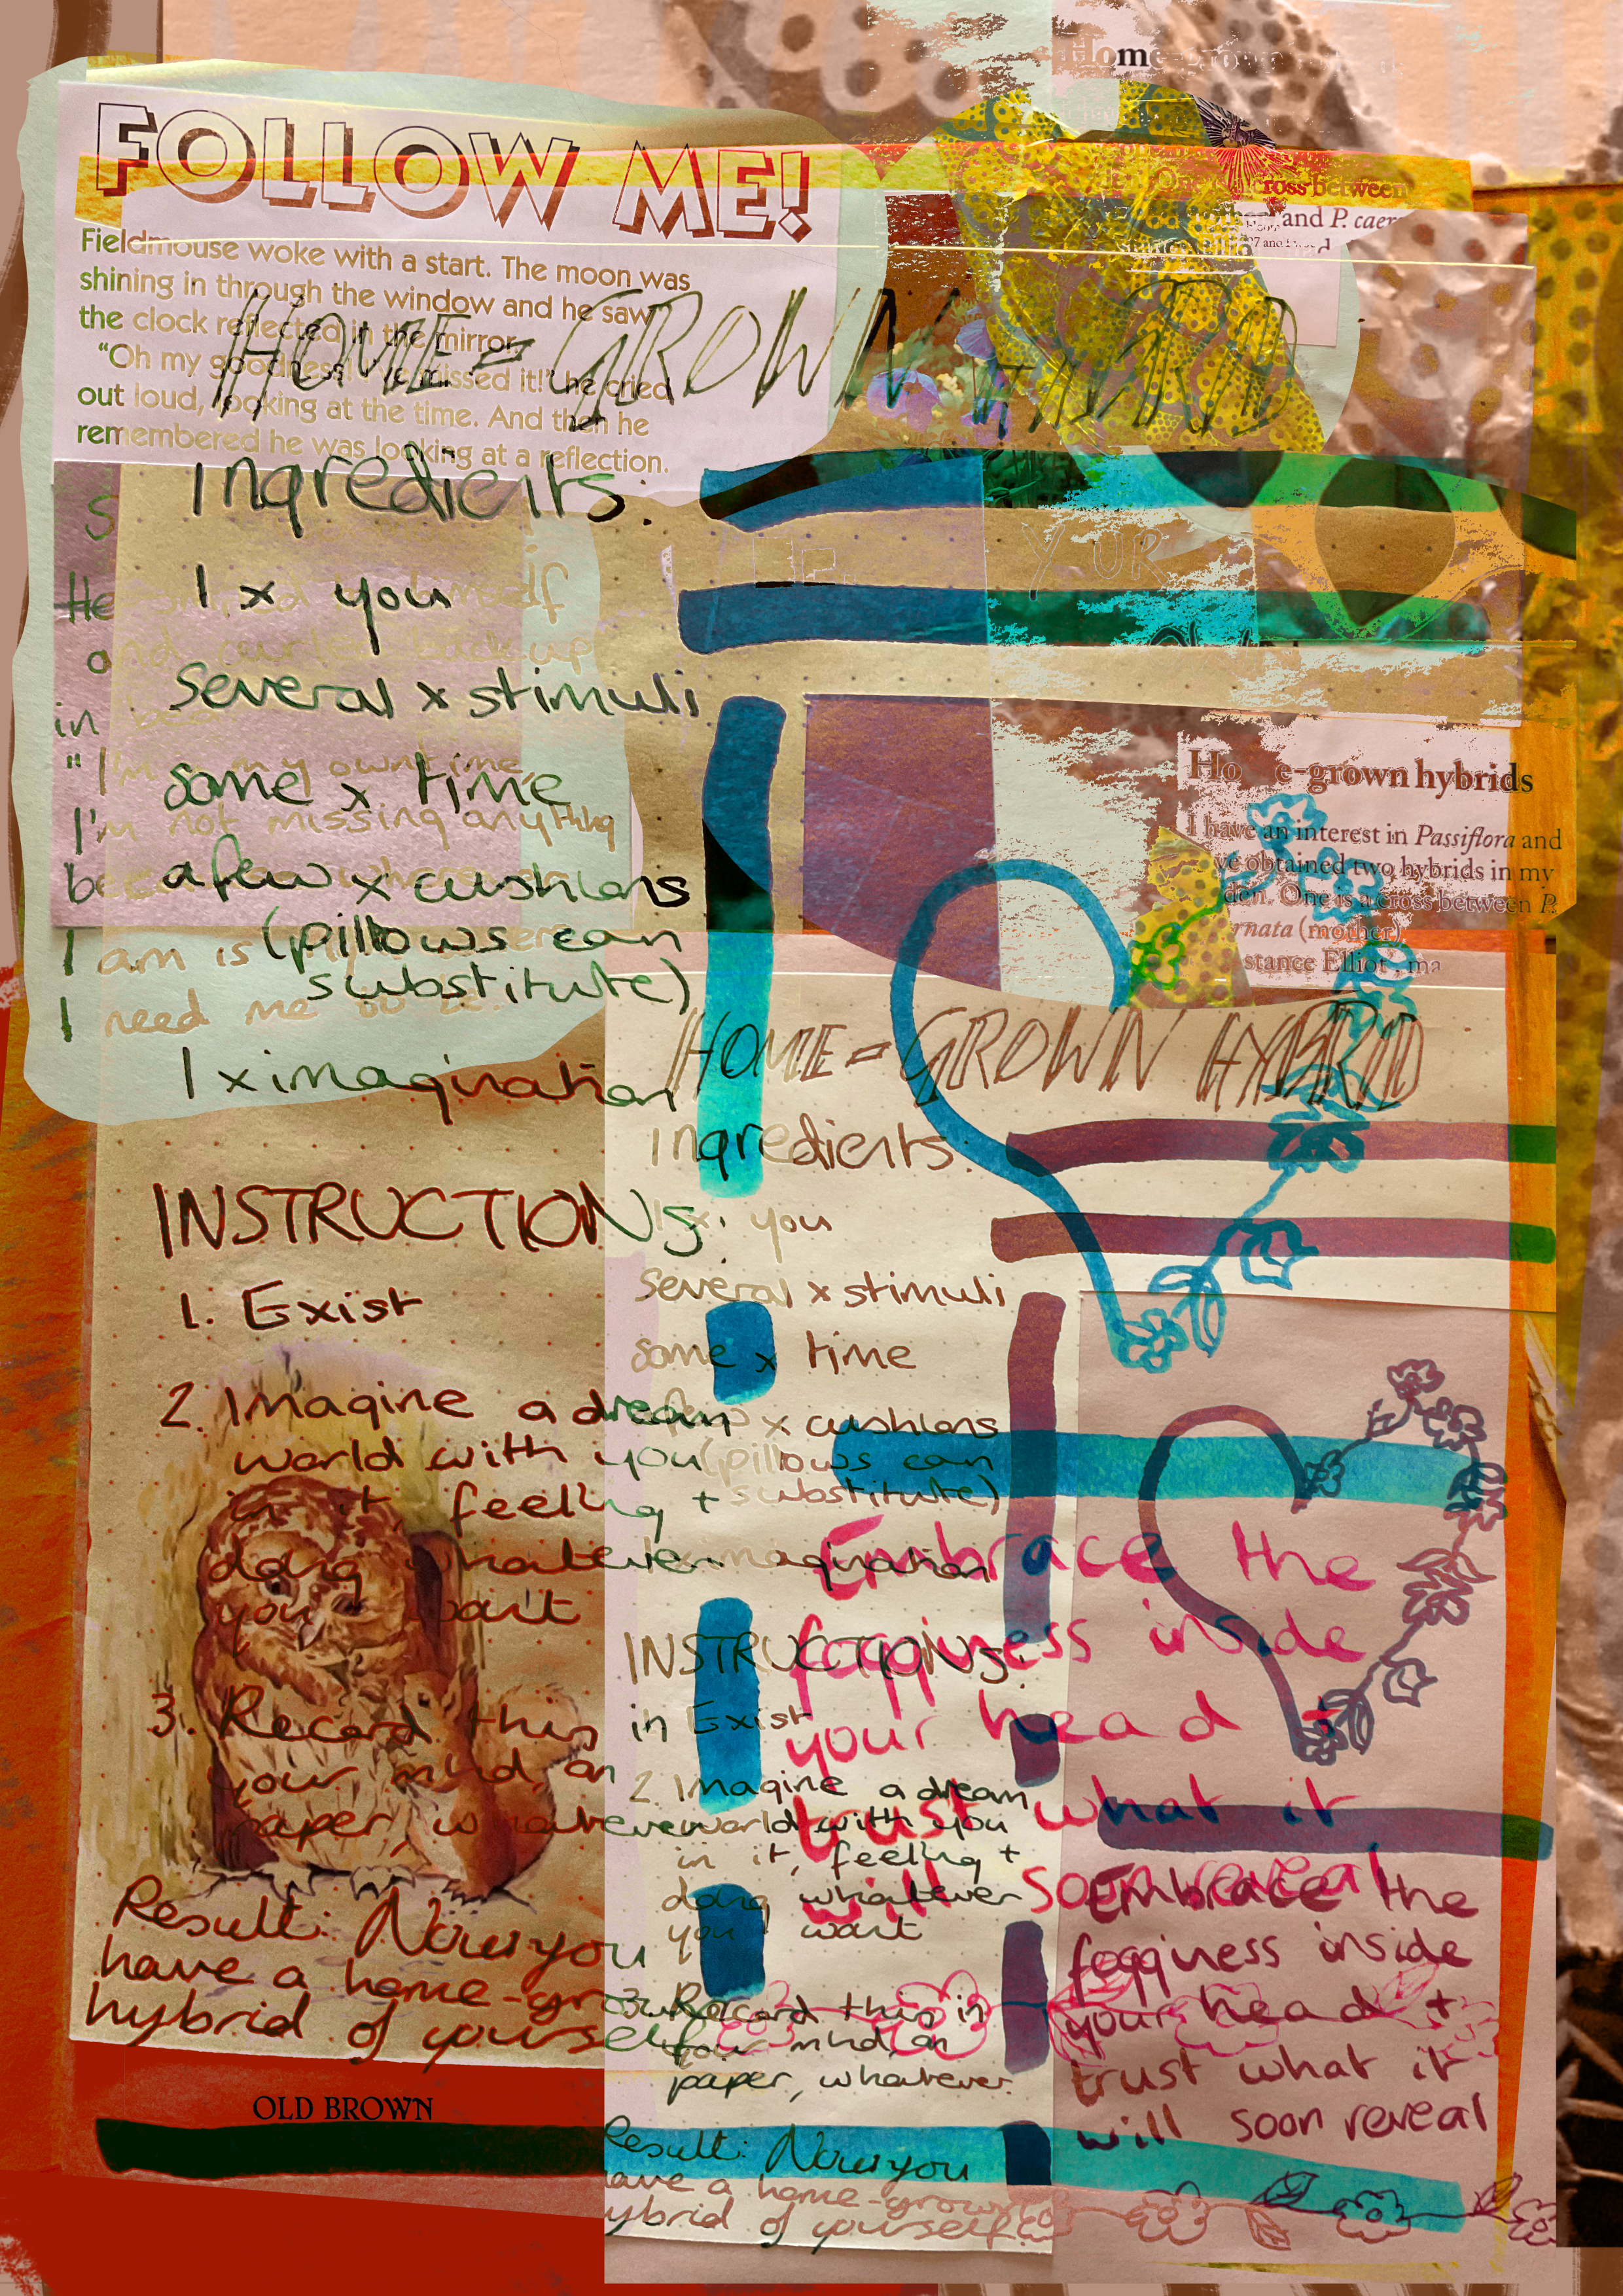 Home-grown
FOLLOW ME!
Fieldmouse woke with a start. The moon was
shining in through the window and he saw
the clock reflected in the mirror.
"Oh my goodness, I've missed it!" he cried
out loud, looking at the time. And then he
remembered he was looking at a reflection.
One is a cross between
and P. caer
HOME-GROWN HYBRID
Ingredients:
1 x you
several x stimuli
some x time
a few x cushions
(pillows can
substitute)
1 x imagination
He
and curled back up
in bed
"I'm my own time,
I'm not missing anything
I am is
I need me to be.
YUR
INSTRUCTIONS:
1. Exist
2. Imagine a dream
world with you
in it, feeling +
doing whatever
you want
3. Record this in
your mind, on
paper, whatever
Result: Now you
have a home-grown
hybrid of yourself
OLD BROWN
Home-grown hybrids
I have an interest in Passiflora and
've obtained two hybrids in my
den. One is a cross between P.
rnata (mother)
stance Elliot', ma
HOME-GROWN HYBRID
Ingredients:
1 x you
several x stimuli
some x time
a few x cushions
(pillows can
substitute)
1 x imagination
INSTRUCTIONS:
1. Exist
2. Imagine a dream
world with you
in it, feeling +
doing whatever
you want
3. Record this in
your mind, on
paper, whatever.
Result: Now you
have a home-grown
hybrid of yourself.
Embrace the
fogginess inside
your head +
trust what it
will soon reveal
Embrace the
fogginess inside
your head +
trust what it
will soon reveal